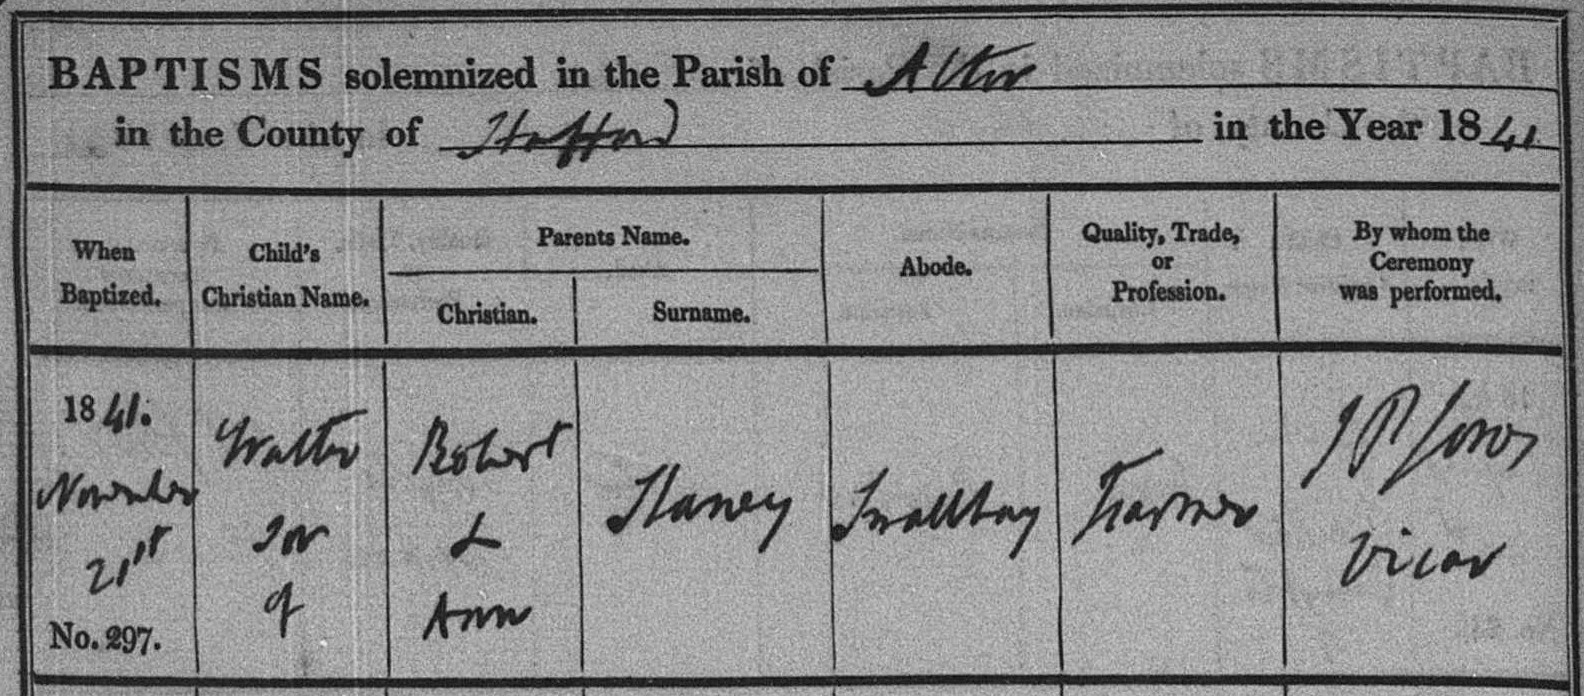 BAPTISMS solemnized in the Parish of Alton
in the County of Stafford in the Year 1841
When Baptized.
Child's Christian Name.
Parents Name.
Christian.
Surname.
Abode.
Quality, Trade, or Profession.
By whom the Ceremony was performed.
1841.
November
21st
No. 297.
Walter
Son
of
Robert
&
Ann
Farmer
J P Jones
Vicar